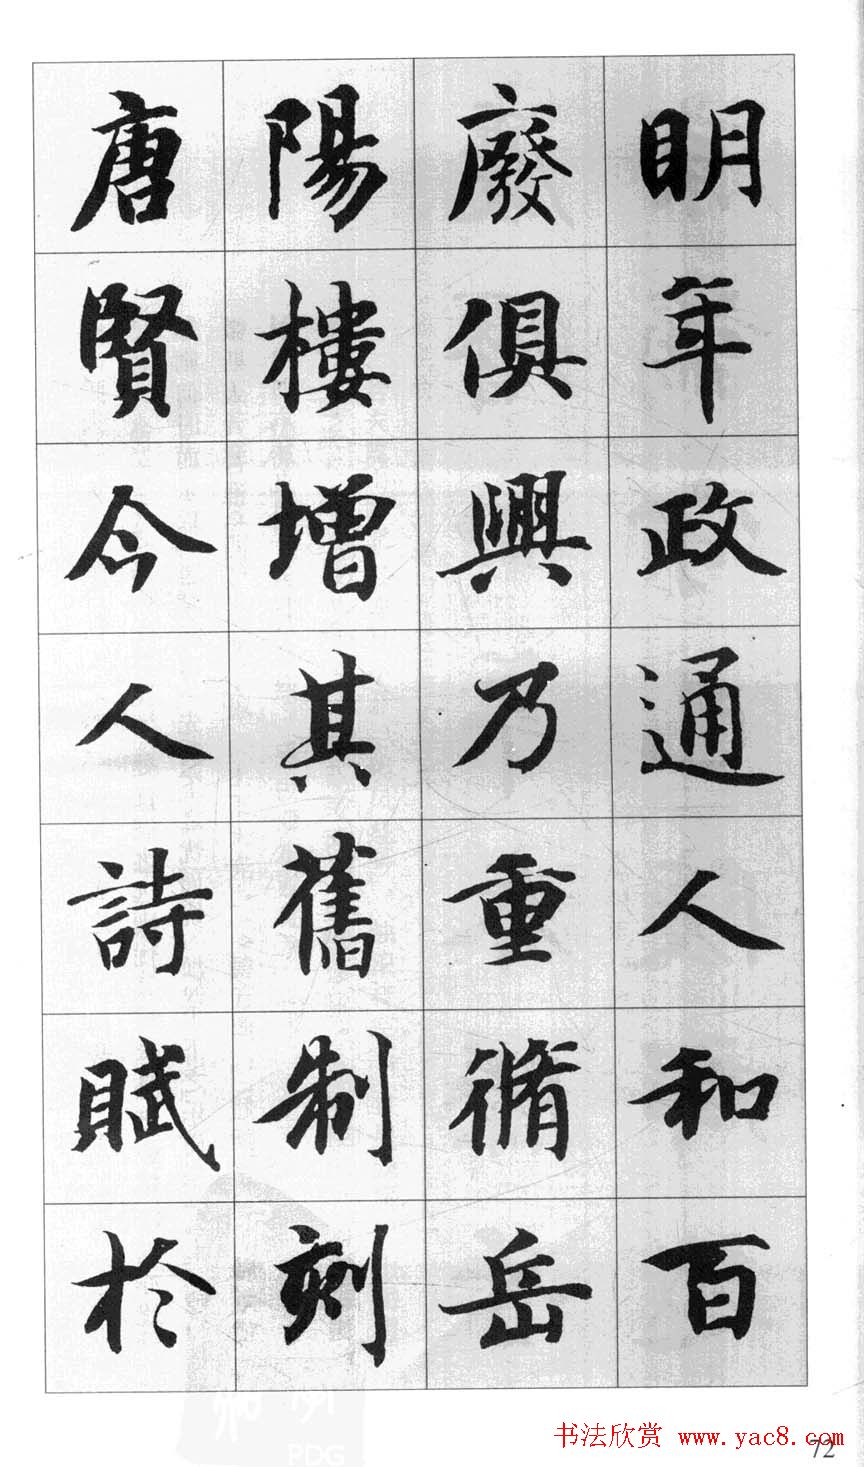 明年政通人和百
廢俱興乃重脩岳
陽樓增其舊制刻
唐賢今人詩賦於
书法欣赏 www.yac8.com
72
PDG